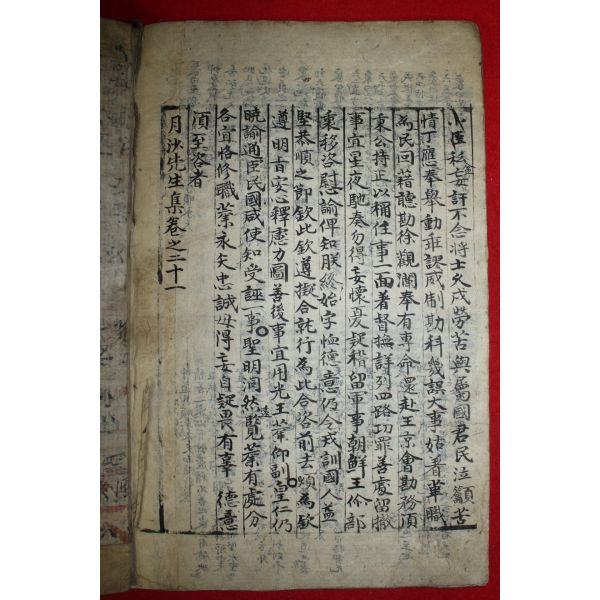 小臣私妄訐不念將士久戍勞苦與屬國君民泣籲苦
情丁應奉舉動乖謬威制勘科幾誤大事姑着革職
爲民回籍聽勘徐觀瀾奉有專命還赴王京會勘務須
秉公持正以稱任事一面著督撫詳列四路功罪善處留撤
事宜星夜馳奏勿得妄懷憂疑稽留軍事朝鮮王伱部
裏移咨慰諭俾知朕終始字恤德意仍令戒訓國人益
堅恭順之節欽此欽遵擬合就行爲此合咨前去煩爲欽
遵明旨安心釋慮力圖善後事宜用光王華仰副皇仁仍
曉諭通臣民國咸使知受誣一事聖明洞然覽業有處分
各宜恪修職業永矢忠誠毋得妄自疑畏有辜德意
須至咨者
月沙先生集卷之二十一